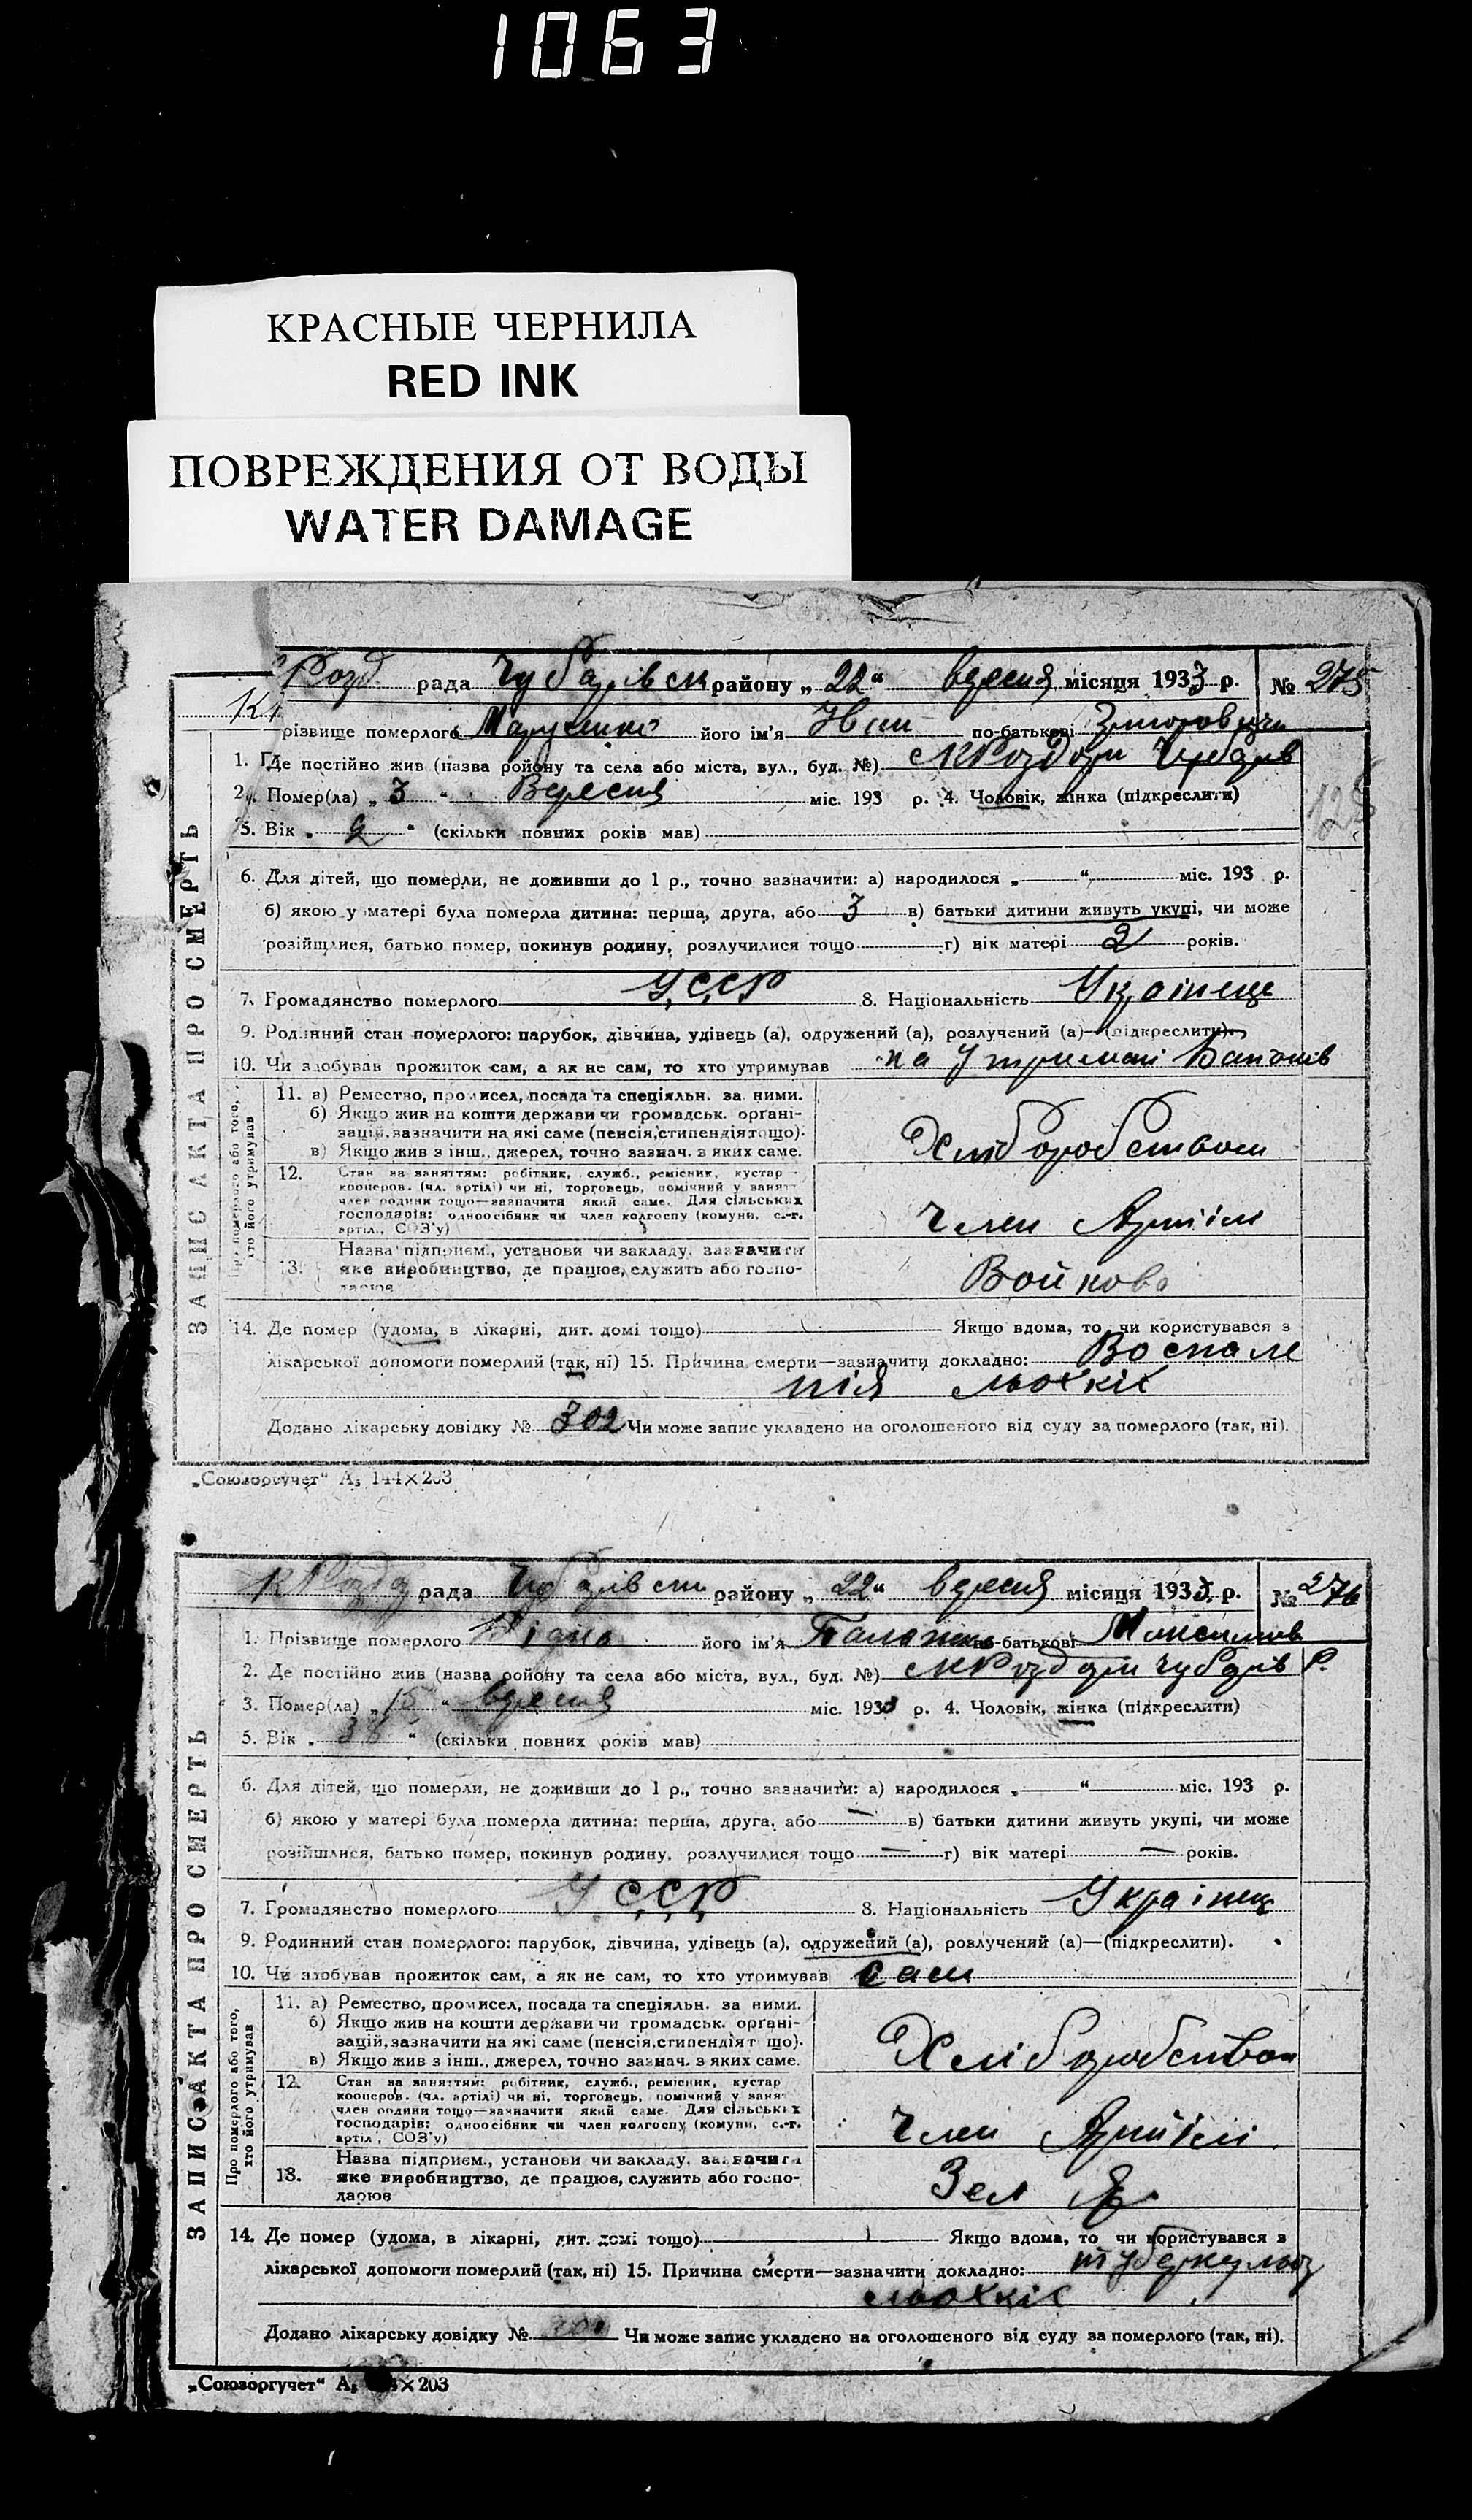 1063
КРАСНЫЕ ЧЕРНИЛА
RED INK
ПОВРЕЖДЕНИЯ ОТ ВОДЫ
WATER DAMAGE
Розд рада Чубарівськ району „ 22 “ вересня місяця 1933 р. № 275
різвище померлого Марченко його ім'я Іван по-батькові
1. Де постійно жив (назва ройону та села або міста, вул., буд. №)
2. Помер(ла) „ 3 “ Вересня міс. 193 р. 4. Чоловік, жінка (підкреслити)
5. Вік „ 2 “ (скільки повних років мав)
6. Для дітей, що померли, не доживши до 1 р., точно зазначити: а) народилося „ “ міс. 193 р.
б) якою у матері була померла дитина: перша, друга, або 3 в) батьки дитини живуть укупі, чи може
розійшлися, батько помер, покинув родину, розлучилися тощо г) вік матері 2 років.
7. Громадянство померлого УССР 8. Національність Українець
9. Родинний стан померлого: парубок, дівчина, удівець (а), одружений (а), розлучений (а)—(підкреслити).
10. Чи здобував прожиток сам, а як не сам, то хто утримував на Утримані Батьків
ЗАПИС АКТА ПРО СМЕРТЬ
Про померлого або того,
хто його утримував
11. а) Ремество, промисел, посада та спеціяльн. за ними.
б) Якщо жив на кошти держави чи громадськ. органі-
зацій, зазначити на які саме (пенсія, стипендія тощо).
в) Якщо жив з інш., джерел, точно зазнач. з яких саме.
Хліборобством
12. Стан за заняттям: робітник, служб., ремісник, кустар
кооперов. (чл. артілі) чи ні, торговець, помічний у занят
член родини тощо—зазначити який саме. Для сільських
господарів: одноосібник чи член колгоспу (комуни, с.-г.
артіл., СОЗ'у)
Член Артілі
13. Назва підприєм., установи чи закладу, зазначити
яке виробництво, де працює, служить або госпо-
дарює
Войкова
14. Де помер (удома, в лікарні, дит. домі тощо) Якщо вдома, то чи користувався з
лікарської допомоги померлий (так, ні) 15. Причина смерти—зазначити докладно: Воспале
нія льохкіх
Додано лікарську довідку № 302 Чи може запис укладено на оголошеного від суду за померлого (так, ні).
„Союзоргучет“ А₅ 144×203
К Розд рада Чубарівськ району „ 22 “ вересня місяця 1933 р. № 276
1. Прізвище померлого Рідна його ім'я по-батькові Максимов
2. Де постійно жив (назва ройону та села або міста, вул., буд. №) Чубарів Р.
3. Помер(ла) „ 15 “ вересня міс. 1933 р. 4. Чоловік, жінка (підкреслити)
5. Вік „ 38 “ (скільки повних років мав)
6. Для дітей, що померли, не доживши до 1 р., точно зазначити: а) народилося „ “ міс. 193 р.
б) якою у матері була померла дитина: перша, друга, або — в) батьки дитини живуть укупі, чи може
розійшлися, батько помер, покинув родину, розлучилися тощо — г) вік матері — років.
7. Громадянство померлого УССР 8. Національність Українец
9. Родинний стан померлого: парубок, дівчина, удівець (а), одружений (а), розлучений (а)—(підкреслити).
10. Чи здобував прожиток сам, а як не сам, то хто утримував сам
ЗАПИС АКТА ПРО СМЕРТЬ
Про померлого або того,
хто його утримував
11. а) Ремество, промисел, посада та спеціяльн. за ними.
б) Якщо жив на кошти держави чи громадськ. органі-
зацій, зазначити на які саме (пенсія, стипендія т що).
в) Якщо жив з інш., джерел, точно зазнач. з яких саме.
Хліборобством
12. Стан за заняттям: робітник, служб., ремісник, кустар
кооперов. (чл. артілі) чи ні, торговець, помічний у занят
член родини тощо—зазначити який саме. Для сільських
господарів: одноосібник чи член колгоспу (комуни, с.-г.
артіл., СОЗ'у)
Член Артілі
13. Назва підприєм., установи чи закладу, зазначити
яке виробництво, де працює, служить або госпо-
дарює
Зел Яр
14. Де помер (удома, в лікарні, дит. домі тощо) Якщо вдома, то чи користувався з
лікарської допомоги померлий (так, ні) 15. Причина смерти—зазначити докладно: туберкульоз
льохкіх
Додано лікарську довідку № Чи може запис укладено на оголошеного від суду за померлого (так, ні).
„Союзоргучет“ А₅ ×203